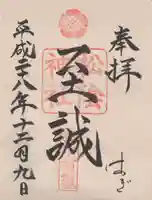 奉拝
はぎ
松陰
神社
至誠
平成二十八年十二月九日